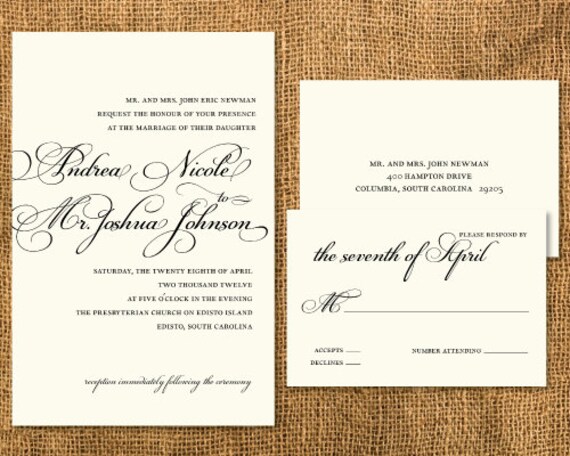 MR. AND MRS. JOHN ERIC NEWMAN
REQUEST THE HONOUR OF YOUR PRESENCE
AT THE MARRIAGE OF THEIR DAUGHTER
Andrea Nicole
to
Mr. Joshua Johnson
SATURDAY, THE TWENTY EIGHTH OF APRIL
TWO THOUSAND TWELVE
AT FIVE O'CLOCK IN THE EVENING
THE PRESBYTERIAN CHURCH ON EDISTO ISLAND
EDISTO, SOUTH CAROLINA
reception immediately following the ceremony
MR. AND MRS. JOHN NEWMAN
400 HAMPTON DRIVE
COLUMBIA, SOUTH CAROLINA 29205
PLEASE RESPOND BY
the seventh of April
M
ACCEPTS
DECLINES
NUMBER ATTENDING